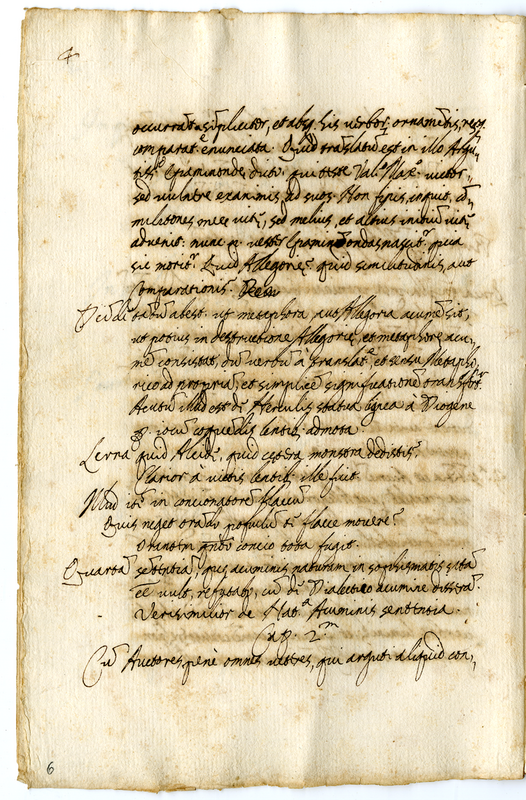 4
occurrat simpliciter, et absq. his verbor. ornamentis, resq.
comparat. enunciata. Quid translatu est in illo Argu-
tiss.o Epaminondę dicto. qui teste Val.o Max.o victor,
sed vulnere exanimis, ad suos. Non finis, inquit, co-
militones meę vitę, sed melius, et altius initiu
advenit. nunc n. vester Epaminondas nascit. quia
sic morit. Quid Allegorię? quid similitudinis, aut
Comparationis?
tatu abest. ut metaphora, aut Allegoria acume sit,
ut potius in destructione Allegorię, et metaphorę acu-
me consistat, cu verbu à translat.e et sensu Metapho-
rico ad propria, et simplice significatione transfert.
Acutu illud est de Herculis statua lignea à Diogene
p. iocu coquedis lentib. admota.
Lerna quid Alcide, quid cętera monstra dedistis?
Clarior à victis lentib. ille fuit.
Illud ite in concionatore
Quis neget orado populu te flacce movere?
Orante concio tota fugit.
Quarta sententia, quę acuminis natura in sophismatis sita
ee vult, refutab. cu de Dialectico acumine dissera.
Verisimilior de Nat.a Acuminis sententia.
Cap. 2.m
Cu Auctores penè omnes veteres, qui arguti aliquid con-
6